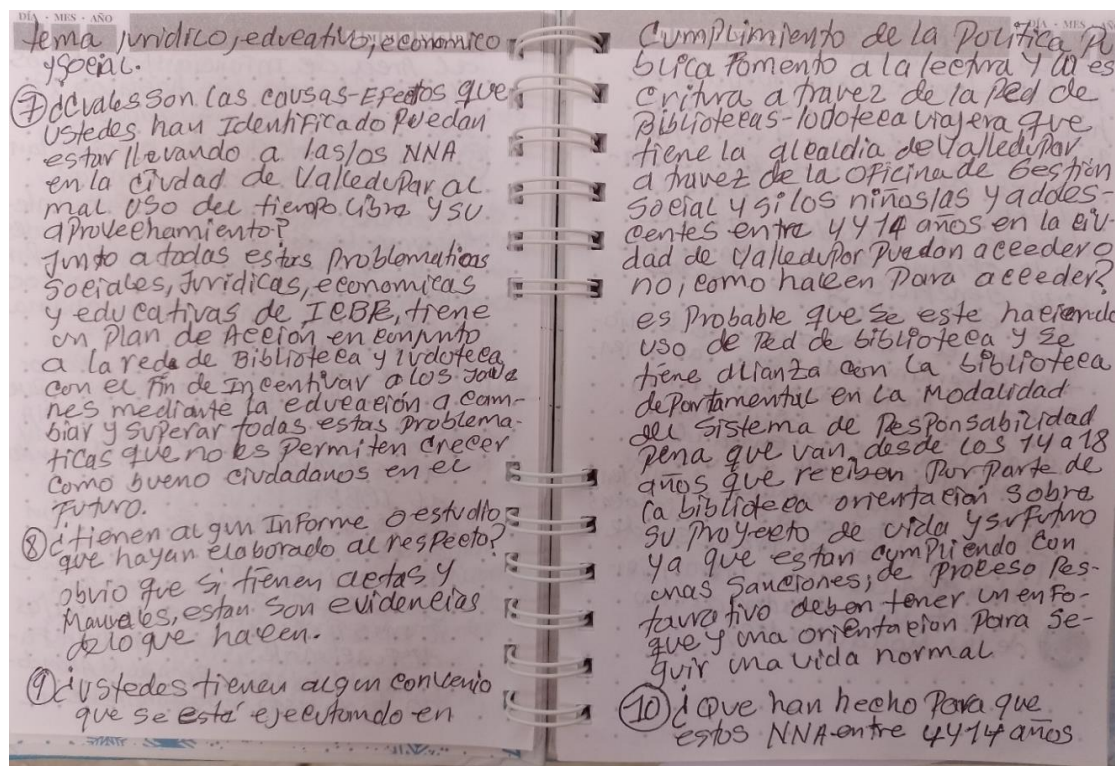 DÍA - MES - AÑO
tema jurídico, educativo, economico
y social.
⑦ ¿Cuales son las causas-Efectos que
ustedes han Identificado Puedan
estar llevando a las/os NNA
en la ciudad de Valledupar al
mal uso del tiempo libre y su
aprovechamiento?
Junto a todas estas Problematicas
Sociales, Jurídicas, economicas
y educativas de ICBF, tiene
un Plan de Acción en conjunto
a la red de Biblioteca y ludoteca
con el fin de Incentivar a los Jove
nes mediante la educación a cam-
biar y superar todas estas Problema-
ticas que no les Permiten crecer
como bueno ciudadanos en el
Futuro.
⑧ ¿tienen algun Informe o estudio
que hayan elaborado al respecto?
obvio que si tienen actas y
Manuales, estan son evidencias
de lo que hacen.
⑨ ¿ustedes tienen algun convenio
que se está ejecutando en
DÍA - MES - A
Cumplimiento de la Política Pú
blica Fomento a la lectura y la es
critura a travez de la Red de
Bibliotecas-lodoteca viajera que
tiene la alcaldia de Valledupar
a travez de la oficina de Gestión
Social y si los niños/as y adoles-
centes entre 4 y 14 años en la ciu-
dad de Valledupar Puedan acceder o
no, como hacen Para acceder?
es Probable que se este haciendo
uso de Red de biblioteca y se
tiene alianza con la biblioteca
departamental en la Modalidad
del Sistema de Responsabilidad
Pena que van desde los 14 a 18
años que reciben Por parte de
la biblioteca orientacion sobre
su Proyecto de vida y su Futuro
ya que estan cumpliendo con
unas Sanciones, de Proceso Res-
taurativo deben tener un enfo-
que y una orientacion Para se-
guir una vida normal
⑩ ¿Que han hecho Para que
estos NNA entre 4 y 14 años